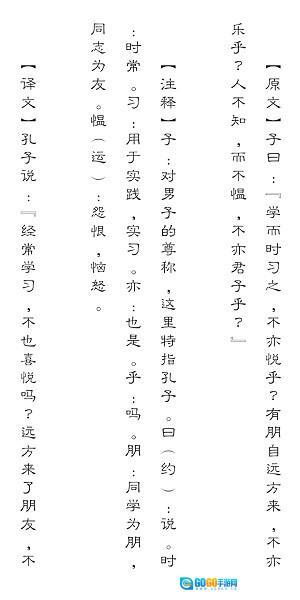 【原文】子曰：『学而时习之，不亦悦乎？有朋自远方来，不亦
乐乎？人不知，而不愠，不亦君子乎？』
【注释】子：对男子的尊称，这里特指孔子。曰（约）：说。时
：时常。习：用于实践，实习。亦：也是。乎：吗。朋：同学为朋，
同志为友。愠（运）：怨恨，恼怒。
【译文】孔子说：『经常学习，不也喜悦吗？远方来了朋友，不
GOGO手游网